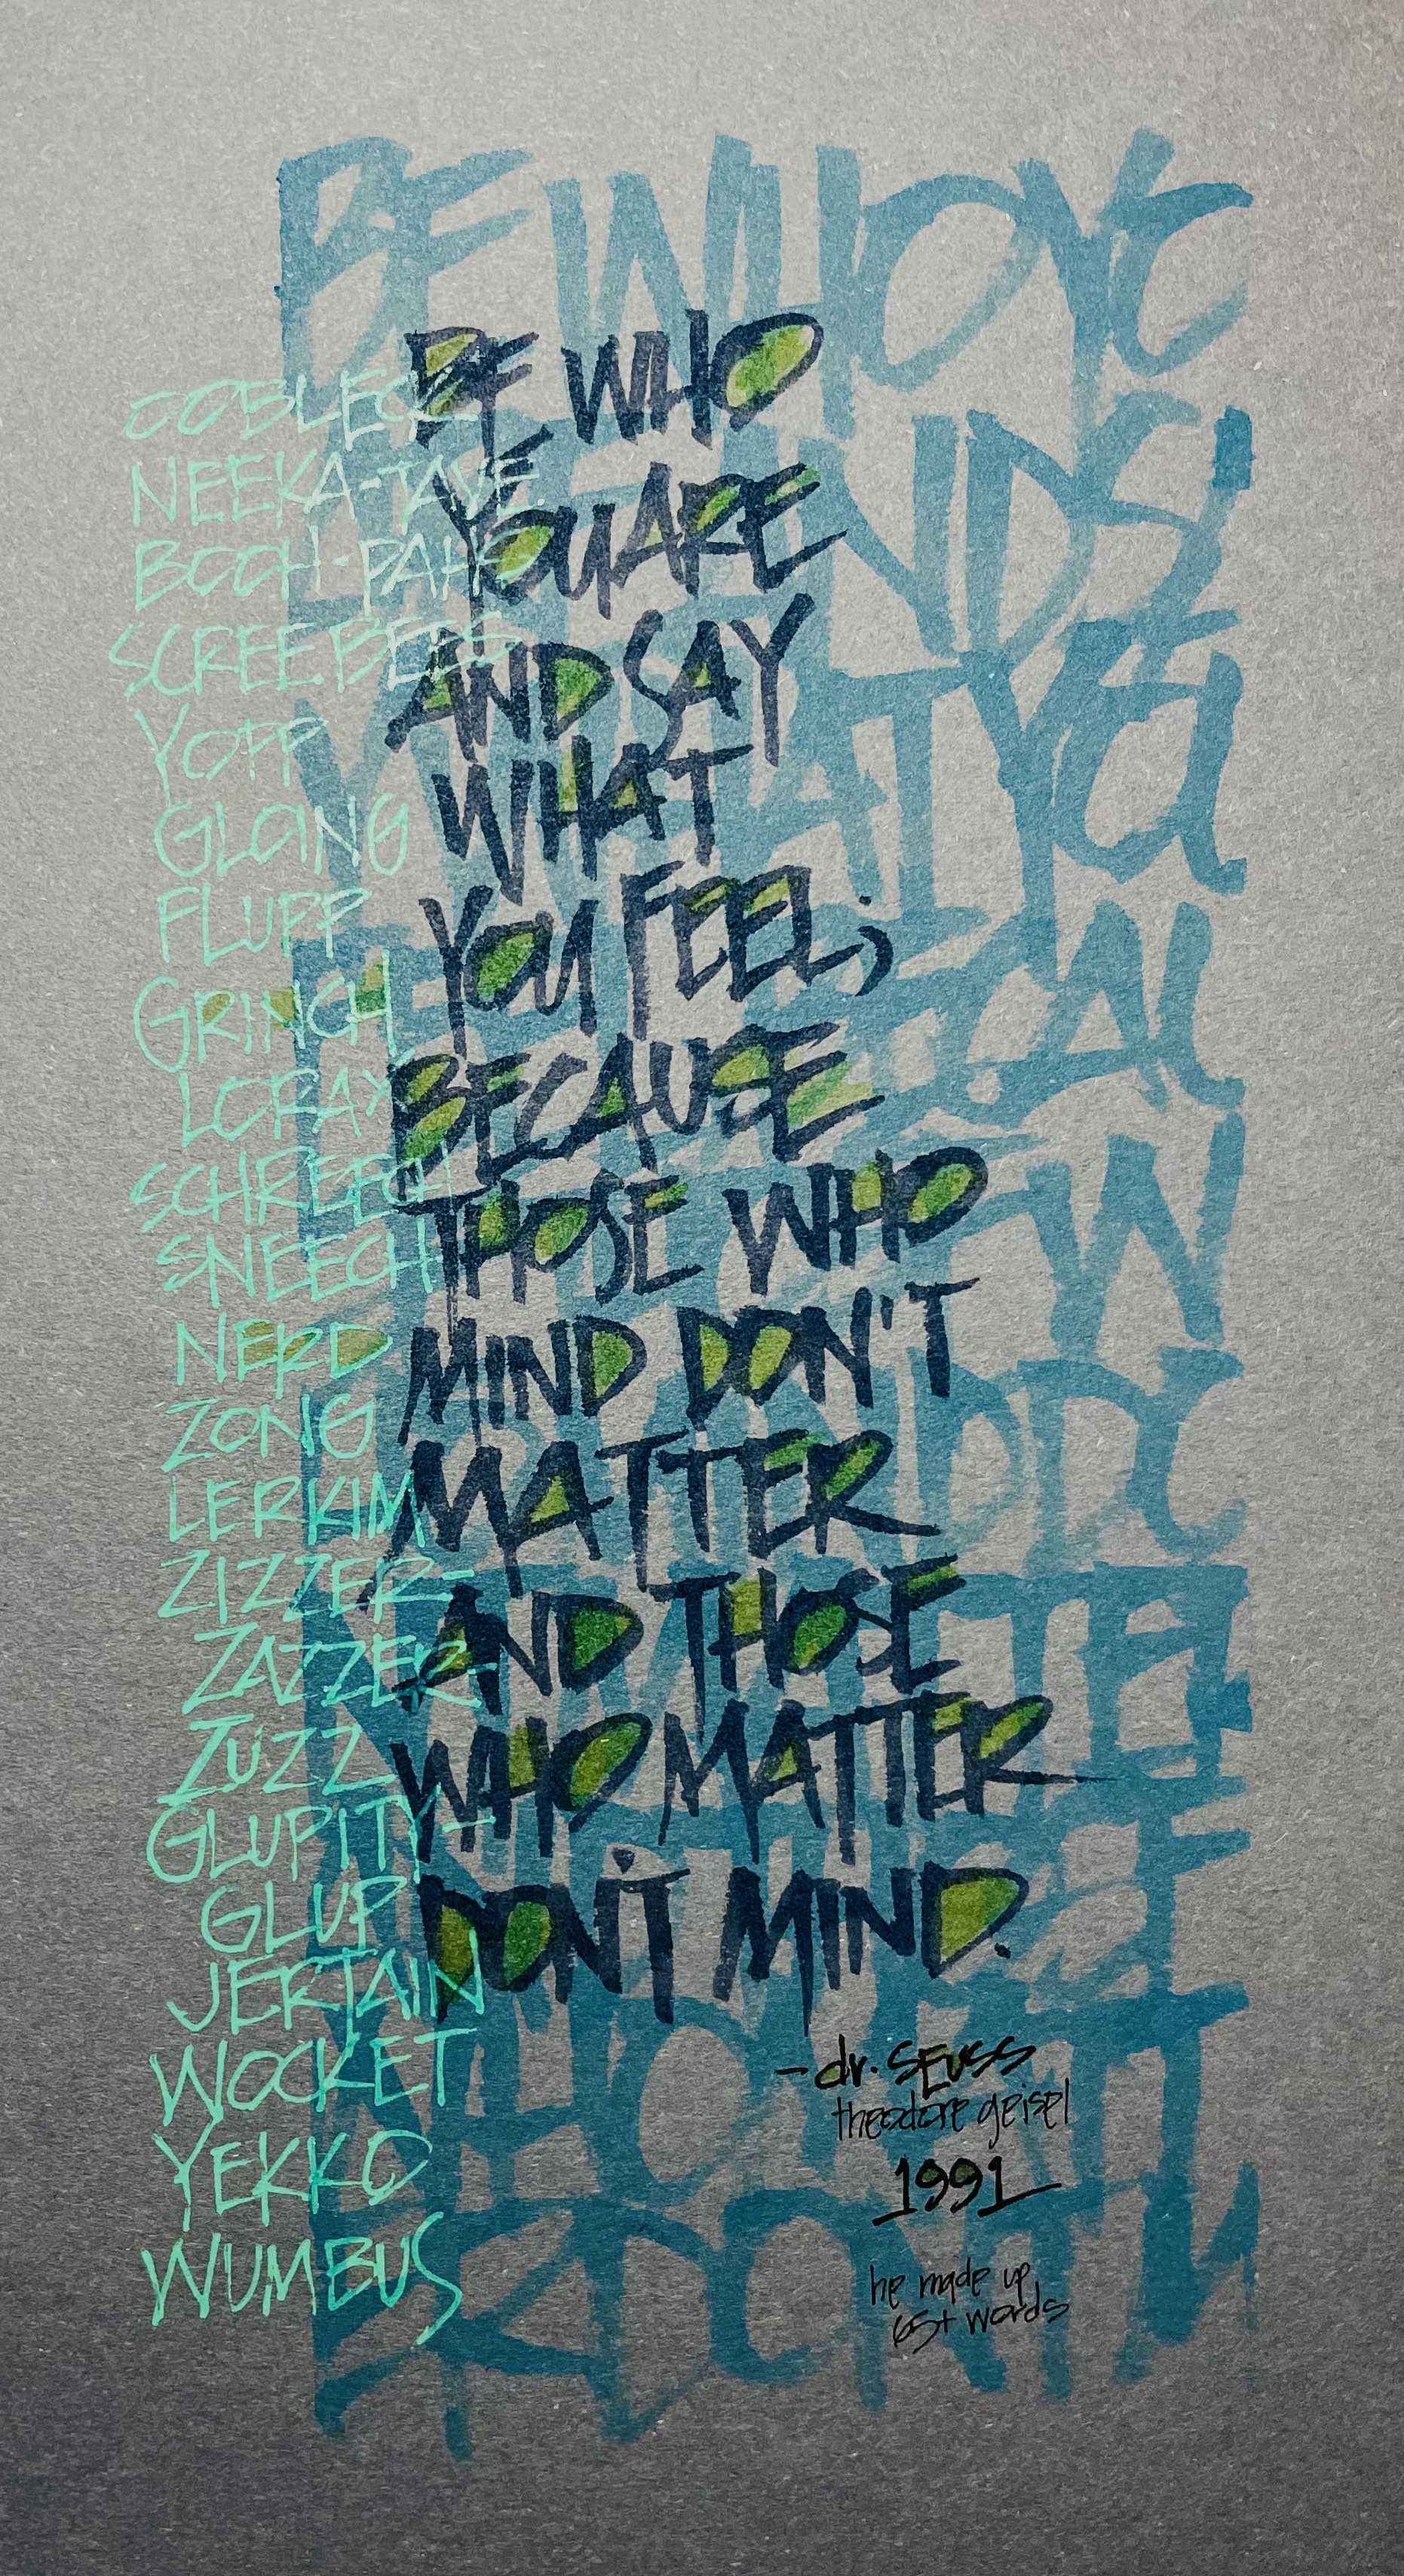 BE WHO
YOU ARE
AND SAY
WHAT
YOU FEEL;
BECAUSE
THOSE WHO
MIND DON'T
MATTER
AND THOSE
WHO MATTER
DON'T MIND.
-dr. SEUSS
theodore geisel
1991
he made up
65+ words
OOBLECK
NEEKA-TAVE
BOOH-PAHS
SCREEBEES
YOPP
GLOING
FLUPP
GRINCH
LORAX
SCHREECH
SNEECH
NERD
ZONG
LERKIM
ZIZZER-
ZAZZER-
ZUZZ
GLUPITY-
GLUP
JERTAIN
WOCKET
YEKKO
WUMBUS
BE WHO YO